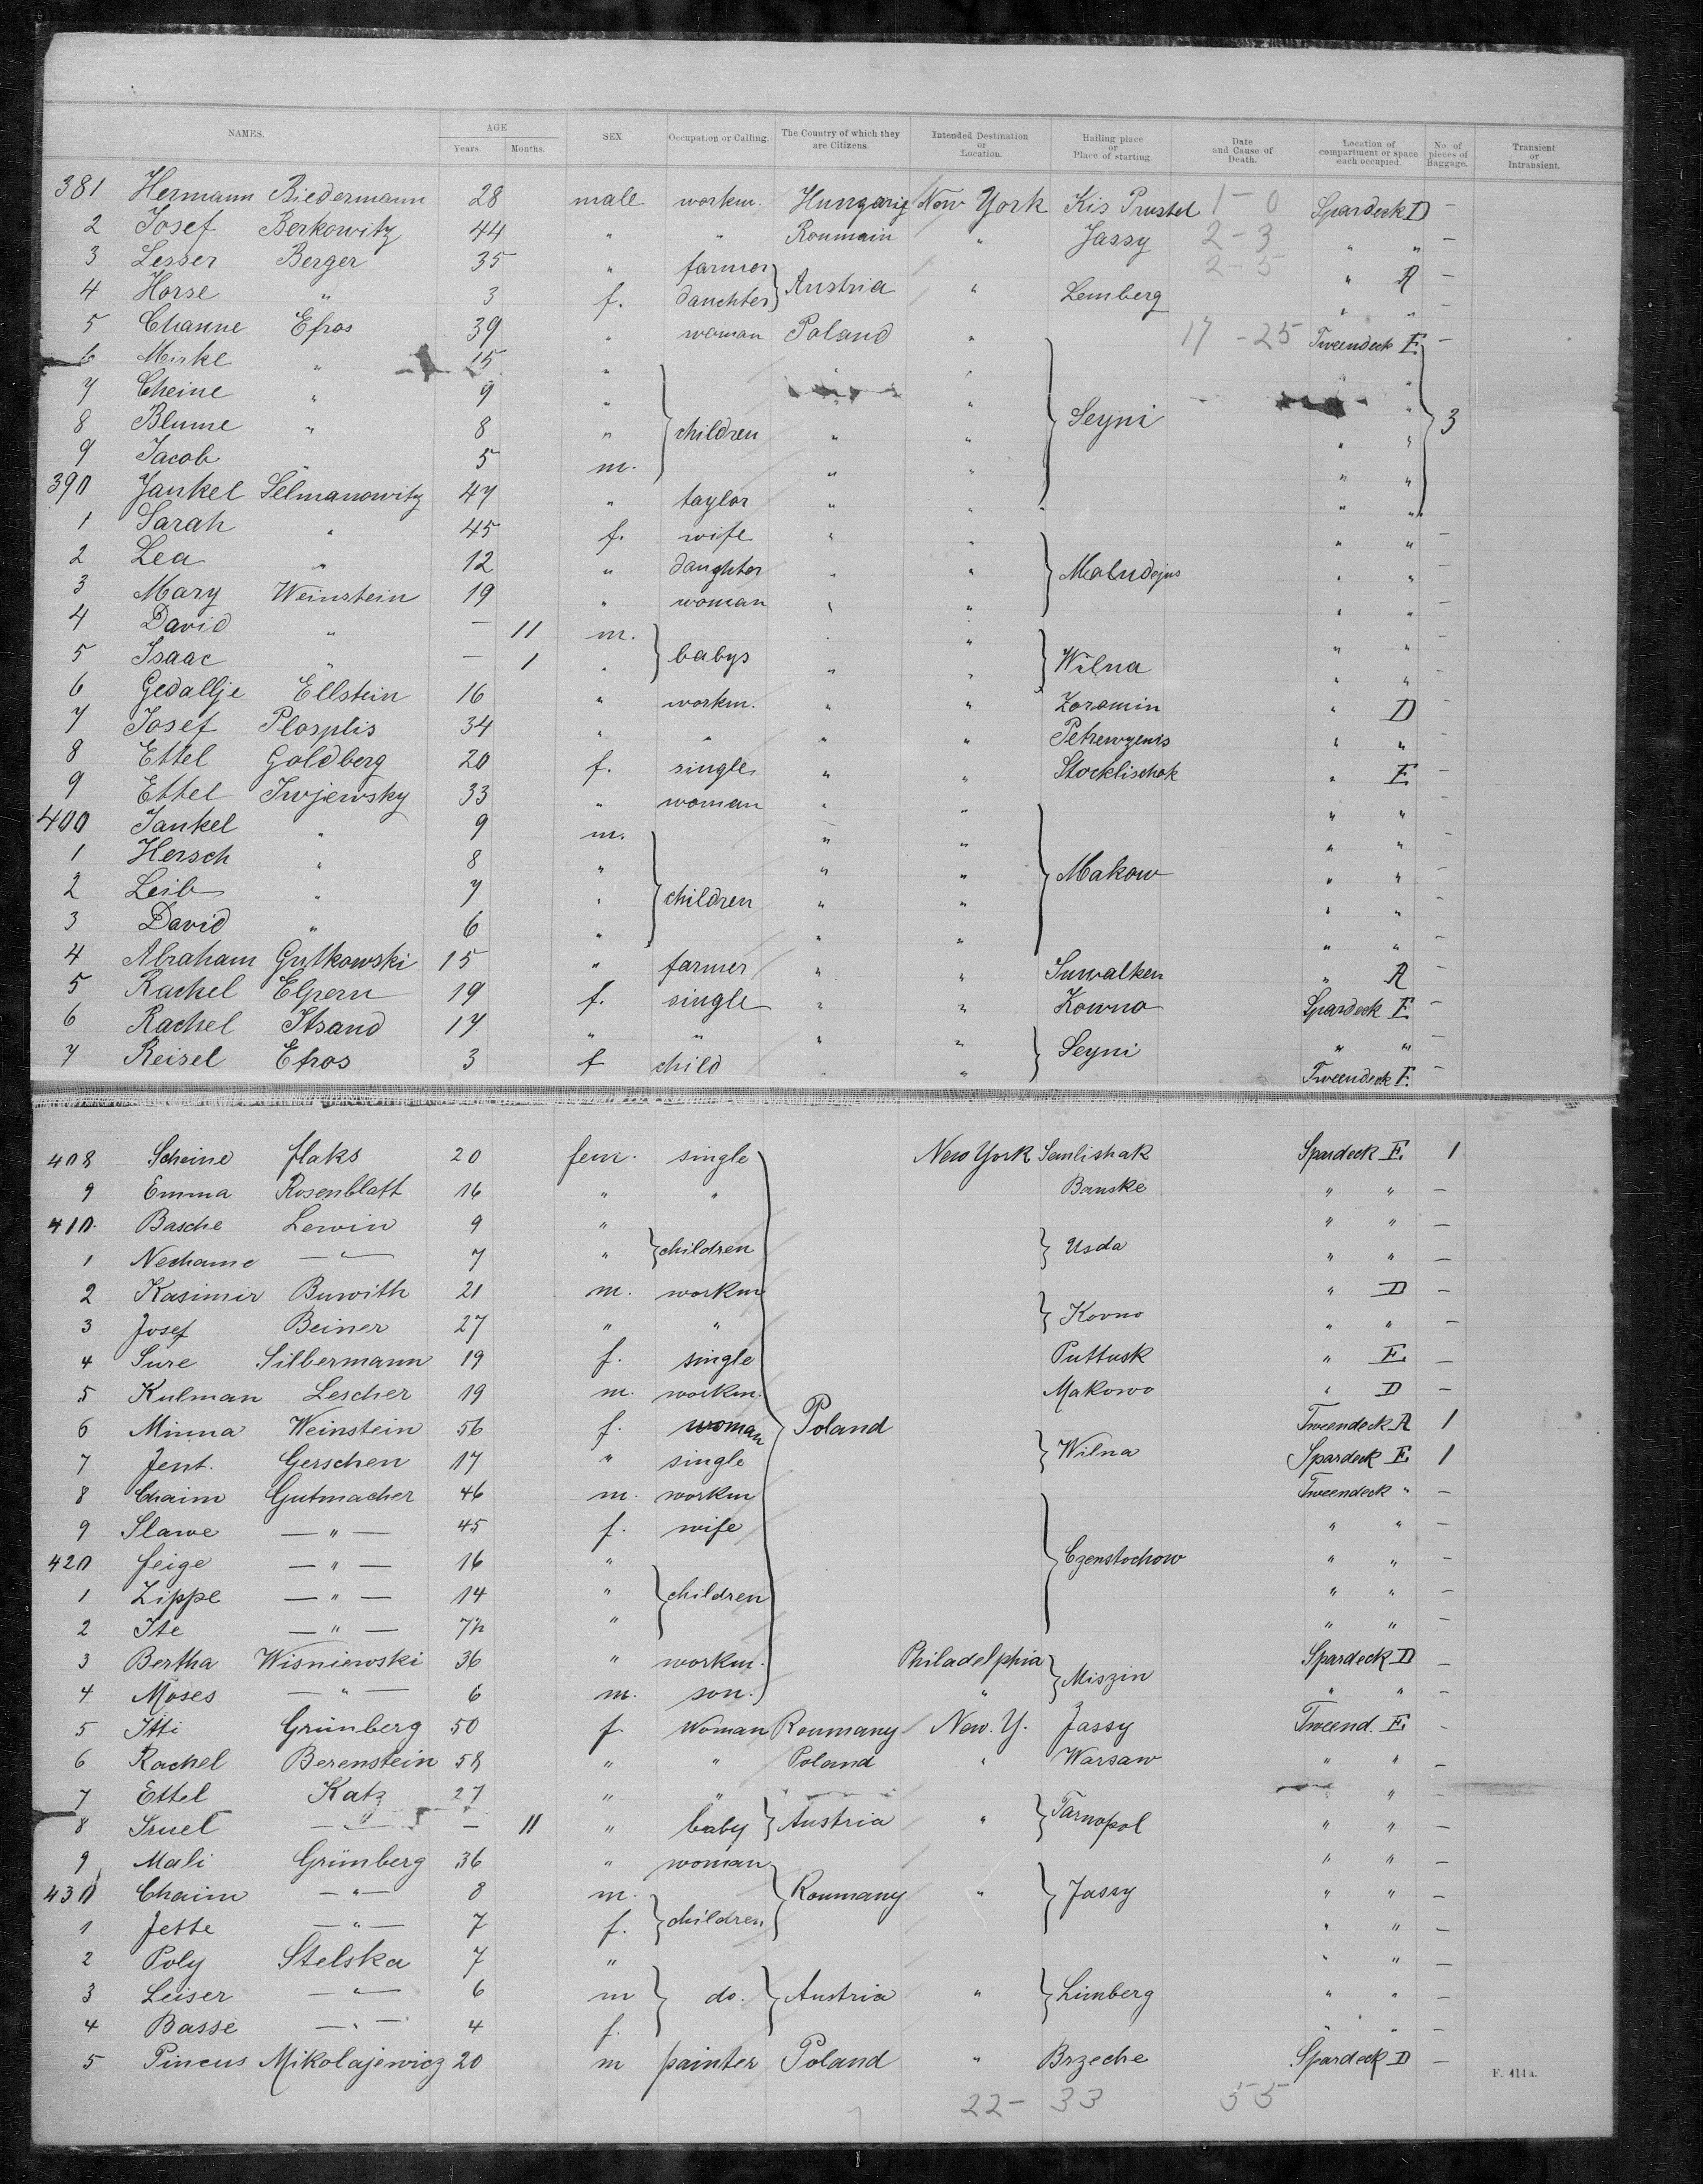 NAMES. AGE Years. Months. SEX Occupation or Calling. The Country of which they are Citizens. Intended Destination or Location. Hailing place or Place of starting. Date and Cause of Death. Location of compartment or space each occupied. No. of pieces of Baggage. Transient or Intransient.
381 Hermann Biedermann 28 male workm. Hungarig New York Kis Prustel 1-0 Spardeck D -
2 Josef Berkowitz 44 " " Roumain " Jassy 2-3 " " -
3 Lesser Berger 35 " farmer } Austria " Lemberg 2-5 " A -
4 Horse " 3 f. dauchter " " -
5 Channe Efros 39 " woman Poland " 17-25 Tweendeck E -
6 Mirke " 15 " " "
7 Cheine " 9 " } children " " } Seyni " " } 3
8 Blume " 8 " " " " "
9 Jacob " 5 m. " " " "
390 Jankel Selmanowitz 47 " taylor " " " "
1 Sarah " 45 f. wife " " " " -
2 Lea " 12 " daughter " " } Maludejus " " -
3 Mary Weinstein 19 " woman " " " " -
4 David " - 11 m. } babys " " } Wilna " " -
5 Isaac " - 1 " " " " " -
6 Gedallje Ellstein 16 " workm. " " Zoromin " D -
7 Josef Plosplis 34 " " " " Petrewzenis " " -
8 Ettel Goldberg 20 f. single " " Stocklischok " E -
9 Ettel Iwjewsky 33 " woman " " " "
400 Jankel " 9 m. " " " " -
1 Hersch " 8 " } children " " } Makow " " -
2 Leib " 7 " " " " " -
3 David " 6 " " " " " -
4 Abraham Gutkowski 15 " farmer " " Suwalken " A -
5 Rachel Elpern 19 f. single " " Kowno Spardeck E -
6 Rachel Itsand 17 " " " " } Seyni " " -
7 Reisel Efros 3 f child " " Tweendeck E. -
408 Scheine flaks 20 fem. single New York Semlishak Spardeck E. 1
9 Emma Rosenblatt 16 " " Banske " " -
410. Basche Lewin 9 " } children } Usda " " -
1 Nechame - " - 7 " " " -
2 Kasimir Buwith 21 m. workm } Kovno " D -
3 Josef Beiner 27 " " " " -
4 Sure Silbermann 19 f. single Puttusk " E. -
5 Kulman Lescher 19 m. workm. Makowo " D -
6 Minna Weinstein 56 f. woman } Poland } Wilna Tweendeck A 1
7 Jent. Gerschen 17 " single Spardeck E. 1
8 Chaim Gutmacher 46 m. workm Tweendeck " -
9 Slawe - " - 45 f. wife } Czenstochow " " -
420 feige - " - 16 " } children " " -
1 Zippe - " - 14 " " " -
2 Ite - " - 7½ " " " -
3 Bertha Wisniewski 36 " workm. Philadelphia } Miszin Spardeck D -
4 Moses - " - 6 m. son. " " " -
5 Itti Grünberg 50 f. woman Roumany New. Y. Jassy Tweend. E. -
6 Rachel Berenstein 58 " " Poland " Warsaw " " -
7 Ettel Katz 27 " " " -
8 Sruel - " - - 11 " baby } Austria " } Tarnopol " " -
9 Mali Grünberg 36 " woman " " -
430 Chaim - " - 8 m. } children } Roumany " } Jassy " " -
1 Jette - " - 7 f. " " -
2 Poly Stelska 7 " " " -
3 Leiser - " - 6 m } do. } Austria " } Limberg " " -
4 Basse - " - 4 f. " " -
5 Pincus Mikolajewicz 20 m painter Poland " Brzeche Spardeck D -
22- 33 55
F. 411a.